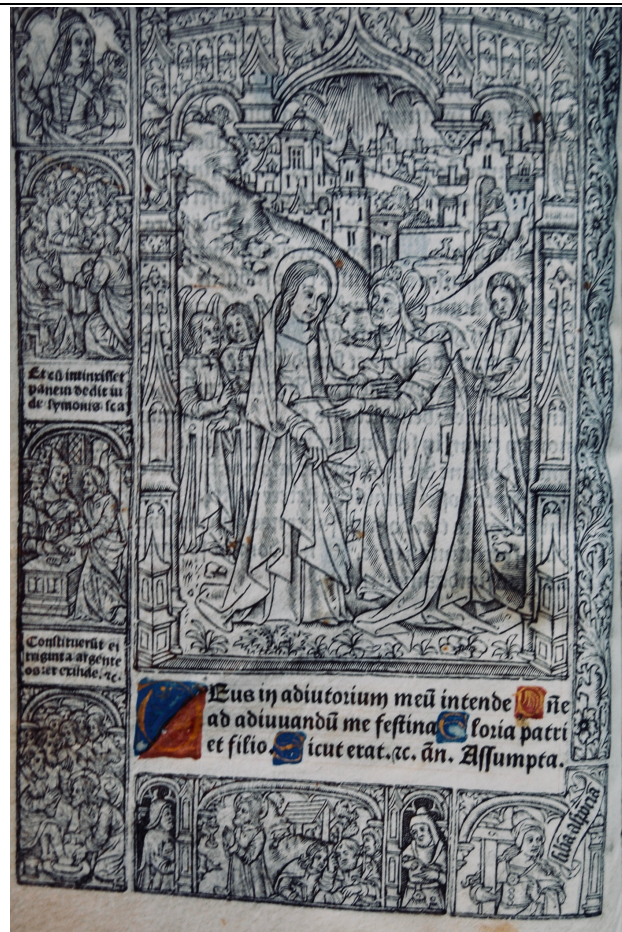 Et cū intinxisset
panem dedit iu
de symonis sca
Constituerūt ei
triginta argente
os: et exinde. ⁊c.
Deus in adiutorium meū intende Dñe
ad adiuuandū me festina Gloria patri
et filio Sicut erat. ⁊c. añ. Assumpta.